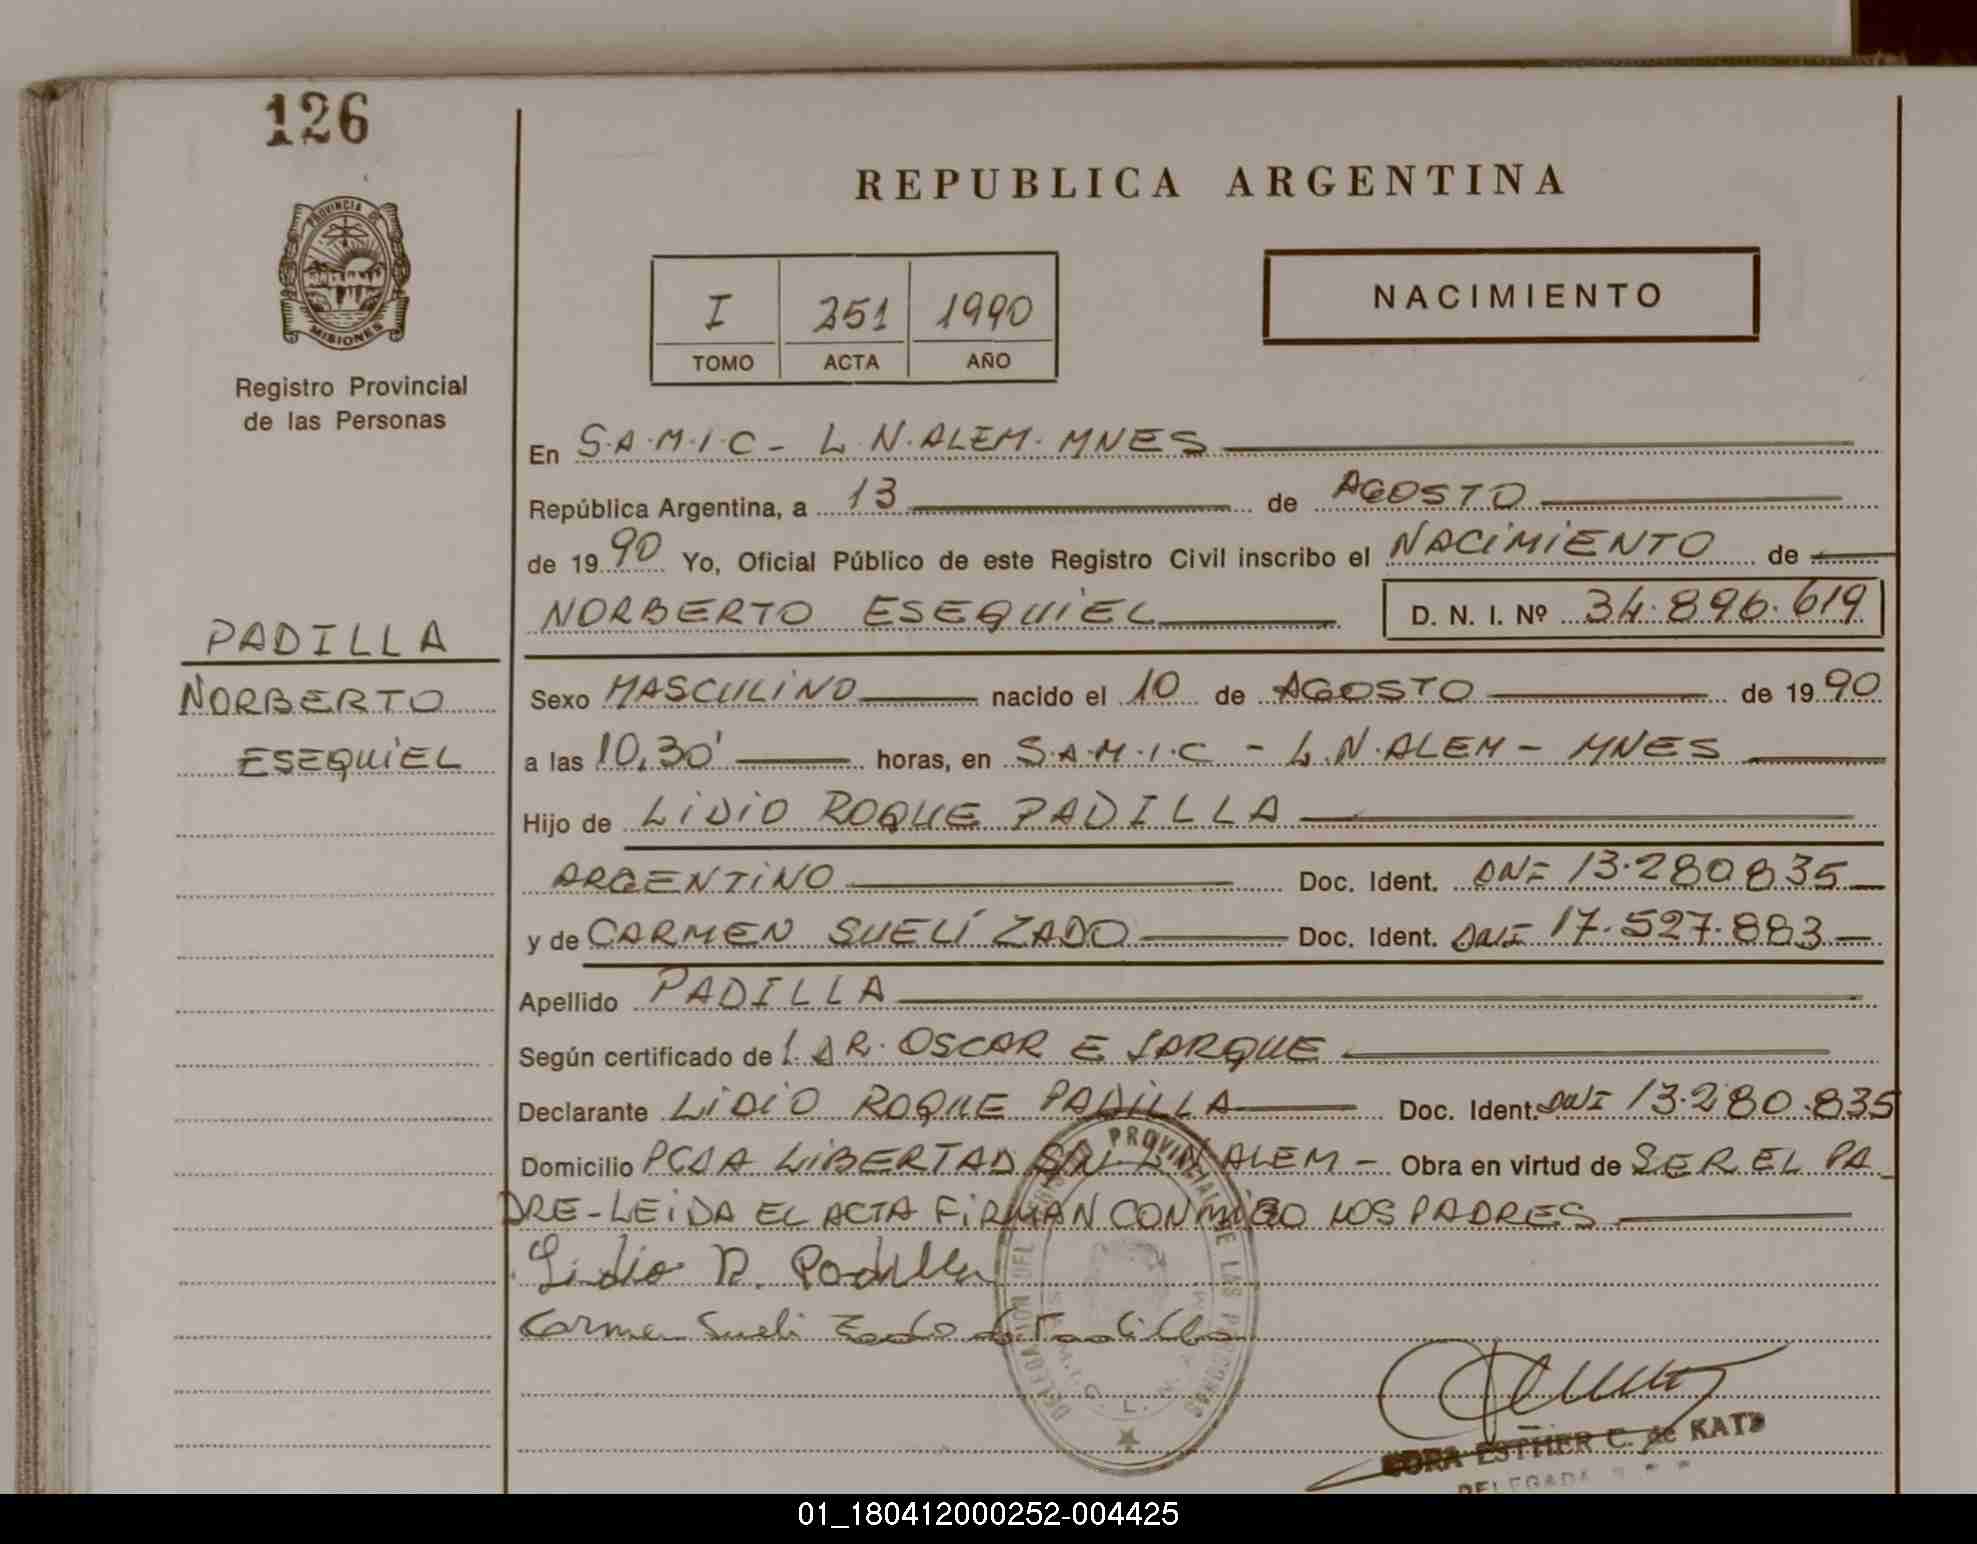 126
REPUBLICA ARGENTINA
PROVINCIA DE
MISIONES
Registro Provincial
de las Personas
I 251 1990
TOMO ACTA AÑO
NACIMIENTO
En S.A.M.I.C - L.N.ALEM. MNES
República Argentina, a 13 de AGOSTO
de 1990 Yo, Oficial Público de este Registro Civil inscribo el NACIMIENTO de
NORBERTO ESEQUIEL D. N. I. Nº 34.896.619
PADILLA
NORBERTO
ESEQUIEL
Sexo MASCULINO nacido el 10 de AGOSTO de 1990
a las 10,30' horas, en S.A.M.I.C - L.N.ALEM - MNES
Hijo de LIDIO ROQUE PADILLA
ARGENTINO Doc. Ident. DNI 13.280.835
y de CARMEN SUELI ZADO Doc. Ident. DNI 17.527.883
Apellido PADILLA
Según certificado de DR. OSCAR E SARQUE
Declarante LIDIO ROQUE PADILLA Doc. Ident. DNI 13.280.835
Domicilio PCDA LIBERTAD ALEM - Obra en virtud de SER EL PA_
DRE - LEIDA EL ACTA FIRMAN CONMIGO LOS PADRES
Lidio R. Padilla
Carmen Sueli Zado de Padilla
DELEGACION DEL REGISTRO PROVINCIAL DE LAS PERSONAS
ESTHER C. de KATZ
DELEGADA
01_180412000252-004425